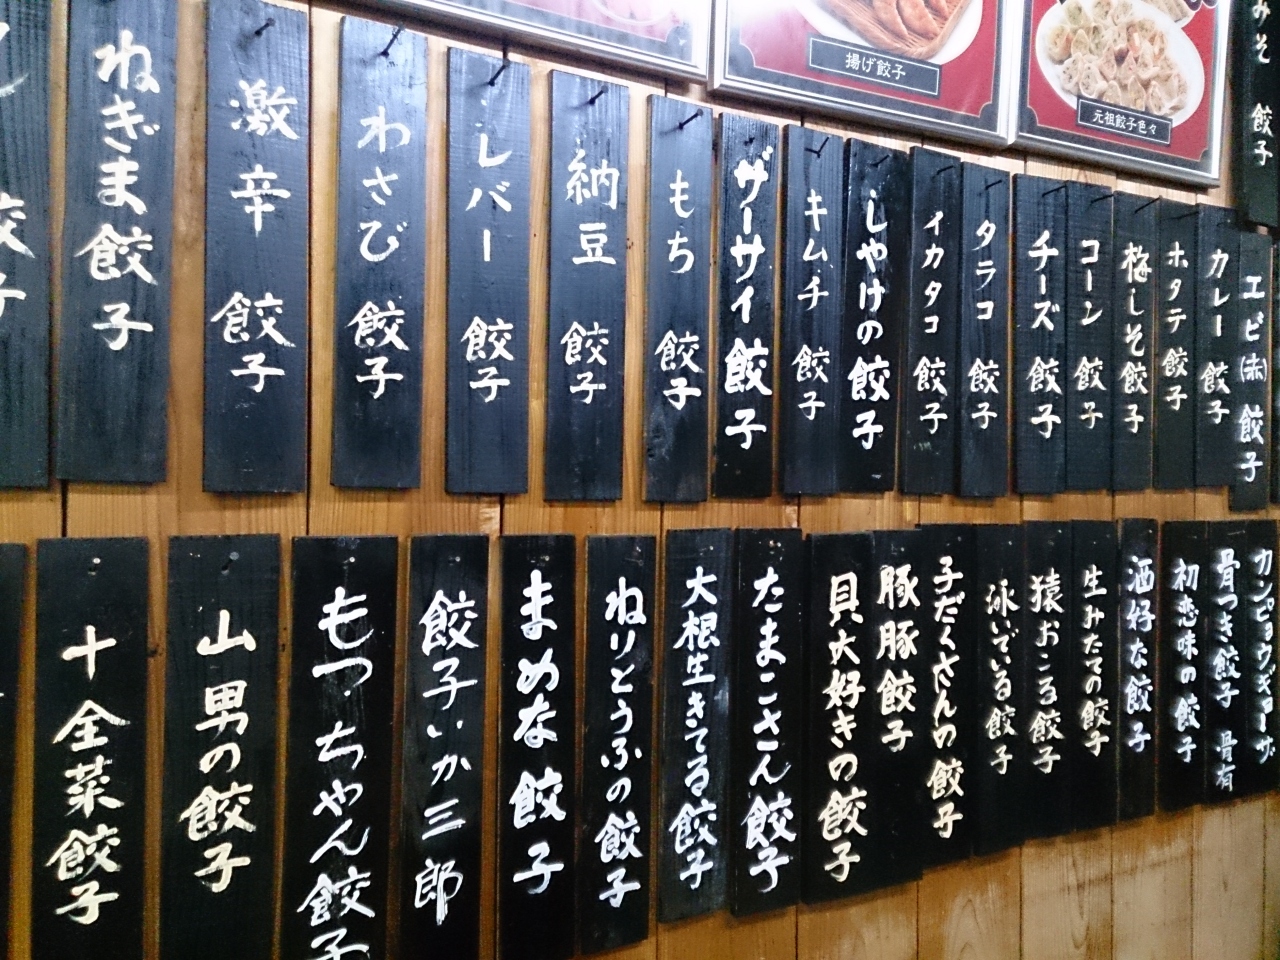 揚げ餃子
元祖餃子色々
みそ 餃子
エビ(赤) 餃子
カレー 餃子
ホタテ 餃子
梅しそ 餃子
コーン 餃子
チーズ 餃子
タラコ 餃子
イカタコ 餃子
しゃけの餃子
キムチ 餃子
ザーサイ 餃子
もち 餃子
納豆 餃子
レバー 餃子
わさび 餃子
激辛 餃子
ねぎま餃子
餃子
カンピョウギョーザ
骨つき餃子 骨有
初恋味の餃子
酒好な餃子
生みたての餃子
猿おこる餃子
泳いでいる餃子
子だくさんの餃子
豚豚餃子
貝大好きの餃子
たまごさん餃子
大根生きてる餃子
ねりとうふの餃子
まめな餃子
餃子いか三郎
もつっちゃん餃子
山男の餃子
十全菜餃子